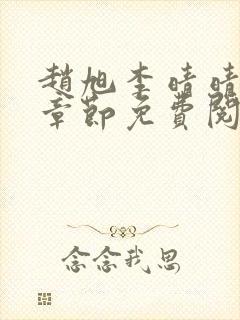 趙旭李晴晴
章節免費閱
念念我思